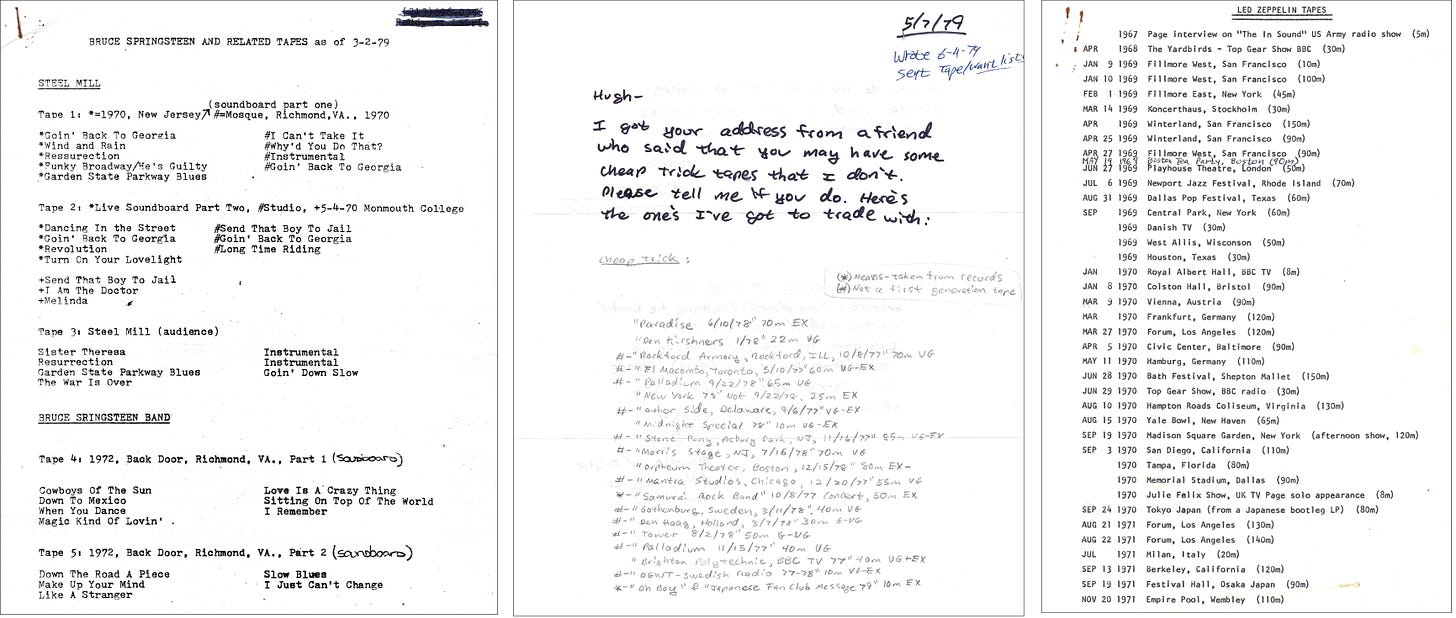 BRUCE SPRINGSTEEN AND RELATED TAPES as of 3-2-79
STEEL MILL
(soundboard part one)
Tape 1: *=1970, New Jersey #=Mosque, Richmond,VA., 1970
*Goin' Back To Georgia #I Can't Take It
*Wind and Rain #Why'd You Do That?
*Ressurection #Instrumental
*Funky Broadway/He's Guilty #Goin' Back To Georgia
*Garden State Parkway Blues
Tape 2: *Live Soundboard Part Two, #Studio, +5-4-70 Monmouth College
*Dancing In the Street #Send That Boy To Jail
*Goin' Back To Georgia #Goin' Back To Georgia
*Revolution #Long Time Riding
*Turn On Your Lovelight
+Send That Boy To Jail
+I Am The Doctor
+Melinda
Tape 3: Steel Mill (audience)
Sister Theresa Instrumental
Resurrection Instrumental
Garden State Parkway Blues Goin' Down Slow
The War Is Over
BRUCE SRINGSTEEN BAND
Tape 4: 1972, Back Door, Richmond, VA., Part 1 (soundboard)
Cowboys Of The Sun Love Is A Crazy Thing
Down To Mexico Sitting On Top Of The World
When You Dance I Remember
Magic Kind Of Lovin'
Tape 5: 1972, Back Door, Richmond, VA., Part 2 (soundboard)
Down The Road A Piece Slow Blues
Make Up Your Mind I Just Can't Change
Like A Stranger
5/7/79
Wrote 6-4-79
Sent tape/want lists
Hugh-
I got your address from a friend
who said that you may have some
cheap trick tapes that I don't.
Please tell me if you do. Here's
the one's I've got to trade with:
cheap trick:
(*) Means-taken from records
(#) Not a first generation tape
"Paradise 6/10/78" 70m EX
"Don Kirshners 1/78" 22m VG
#-"Rockford Armory, Rockford, ILL, 10/8/77" 70m VG
#-"El Macombo, Toronto, 5/10/77" 60m VG-EX
#-"Palladium 9/22/78" 65m VG
"New York 78" Not 9/22/78, 25m EX
#-"other Side, Delaware, 9/6/77" VG-EX
"Midnight Special 78" 10m VG-EX
#-"Stone Pony, Asbury Park, NJ, 11/16/77" 85m VG-EX
#-"Morris Stage, NJ, 7/16/78" 70m VG
"Orpheum Theater, Boston, 12/15/78" 80m EX-
#-"Mantra Studios, Chicago, 12/20/77" 55m VG
*-"Samurai Rock Band" 10/8/77 Concert, 50m EX
#-"Gothenburg, Sweden, 3/11/78", 40m VG
#-"Den Haag, Holland, 3/7/78" 30m G-VG
#-"Tower 8/2/78" 50m G-VG
#-"Palladium 11/15/77" 40m VG
"Brighton Polytechnic, BBC TV 77" 40m VG+EX
#-"OGWT-Swedish Radio 77-78" 10m VG-EX
*-"Oh Boy" & "Japanese Fan Club Message 79" 10m EX
LED ZEPPELIN TAPES
1967 Page interview on "The In Sound" US Army radio show (5m)
APR 1968 The Yardbirds - Top Gear Show BBC (30m)
JAN 9 1969 Fillmore West, San Francisco (10m)
JAN 10 1969 Fillmore West, San Francisco (100m)
FEB 1 1969 Fillmore East, New York (45m)
MAR 14 1969 Koncerthaus, Stockholm (30m)
APR 1969 Winterland, San Francisco (150m)
APR 25 1969 Winterland, San Francisco (90m)
APR 27 1969 Fillmore West, San Francisco (90m)
MAY 19 1969 Boston Tea Party, Boston (90m)
JUN 27 1969 Playhouse Theatre, London (50m)
JUL 6 1969 Newport Jazz Festival, Rhode Island (70m)
AUG 31 1969 Dallas Pop Festival, Texas (60m)
SEP 1969 Central Park, New York (60m)
1969 Danish TV (30m)
1969 West Allis, Wisconson (50m)
1969 Houston, Texas (30m)
JAN 1970 Royal Albert Hall, BBC TV (8m)
JAN 8 1970 Colston Hall, Bristol (90m)
MAR 9 1970 Vienna, Austria (90m)
MAR 1970 Frankfurt, Germany (120m)
MAR 27 1970 Forum, Los Angeles (120m)
APR 5 1970 Civic Center, Baltimore (90m)
MAY 11 1970 Hamburg, Germany (110m)
JUN 28 1970 Bath Festival, Shepton Mallet (150m)
JUN 29 1970 Top Gear Show, BBC radio (30m)
AUG 10 1970 Hampton Roads Coliseum, Virginia (130m)
AUG 15 1970 Yale Bowl, New Haven (65m)
SEP 19 1970 Madison Square Garden, New York (afternoon show, 120m)
SEP 3 1970 San Diego, California (110m)
1970 Tampa, Florida (80m)
1970 Memorial Stadium, Dallas (90m)
1970 Julie Felix Show, UK TV Page solo appearance (8m)
SEP 24 1970 Tokyo Japan (from a Japanese bootleg LP) (80m)
AUG 21 1971 Forum, Los Angeles (130m)
AUG 22 1971 Forum, Los Angeles (140m)
JUL 1971 Milan, Italy (20m)
SEP 13 1971 Berkeley, California (120m)
SEP 19 1971 Festival Hall, Osaka Japan (90m)
NOV 20 1971 Empire Pool, Wembley (110m)